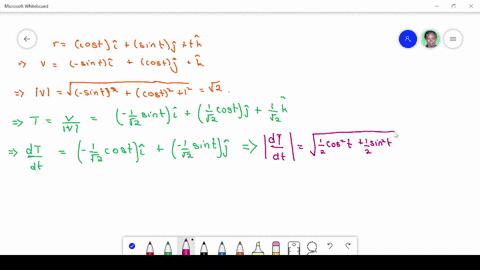 Microsoft Whiteboard
r = (cost)î + (sint)ĵ + tk̂
⇒ v = (-sint)î + (cost)ĵ + k̂
⇒ |v| = √((-sint)² + (cost)² + 1²) = √2.
⇒ T = v/|v| = (-1/√2 sint)î + (1/√2 cost)ĵ + 1/√2 k̂
⇒ dT/dt = (-1/√2 cost)î + (-1/√2 sint)ĵ ⇒ |dT/dt| = √(1/2 cos²t + 1/2 sin²t)